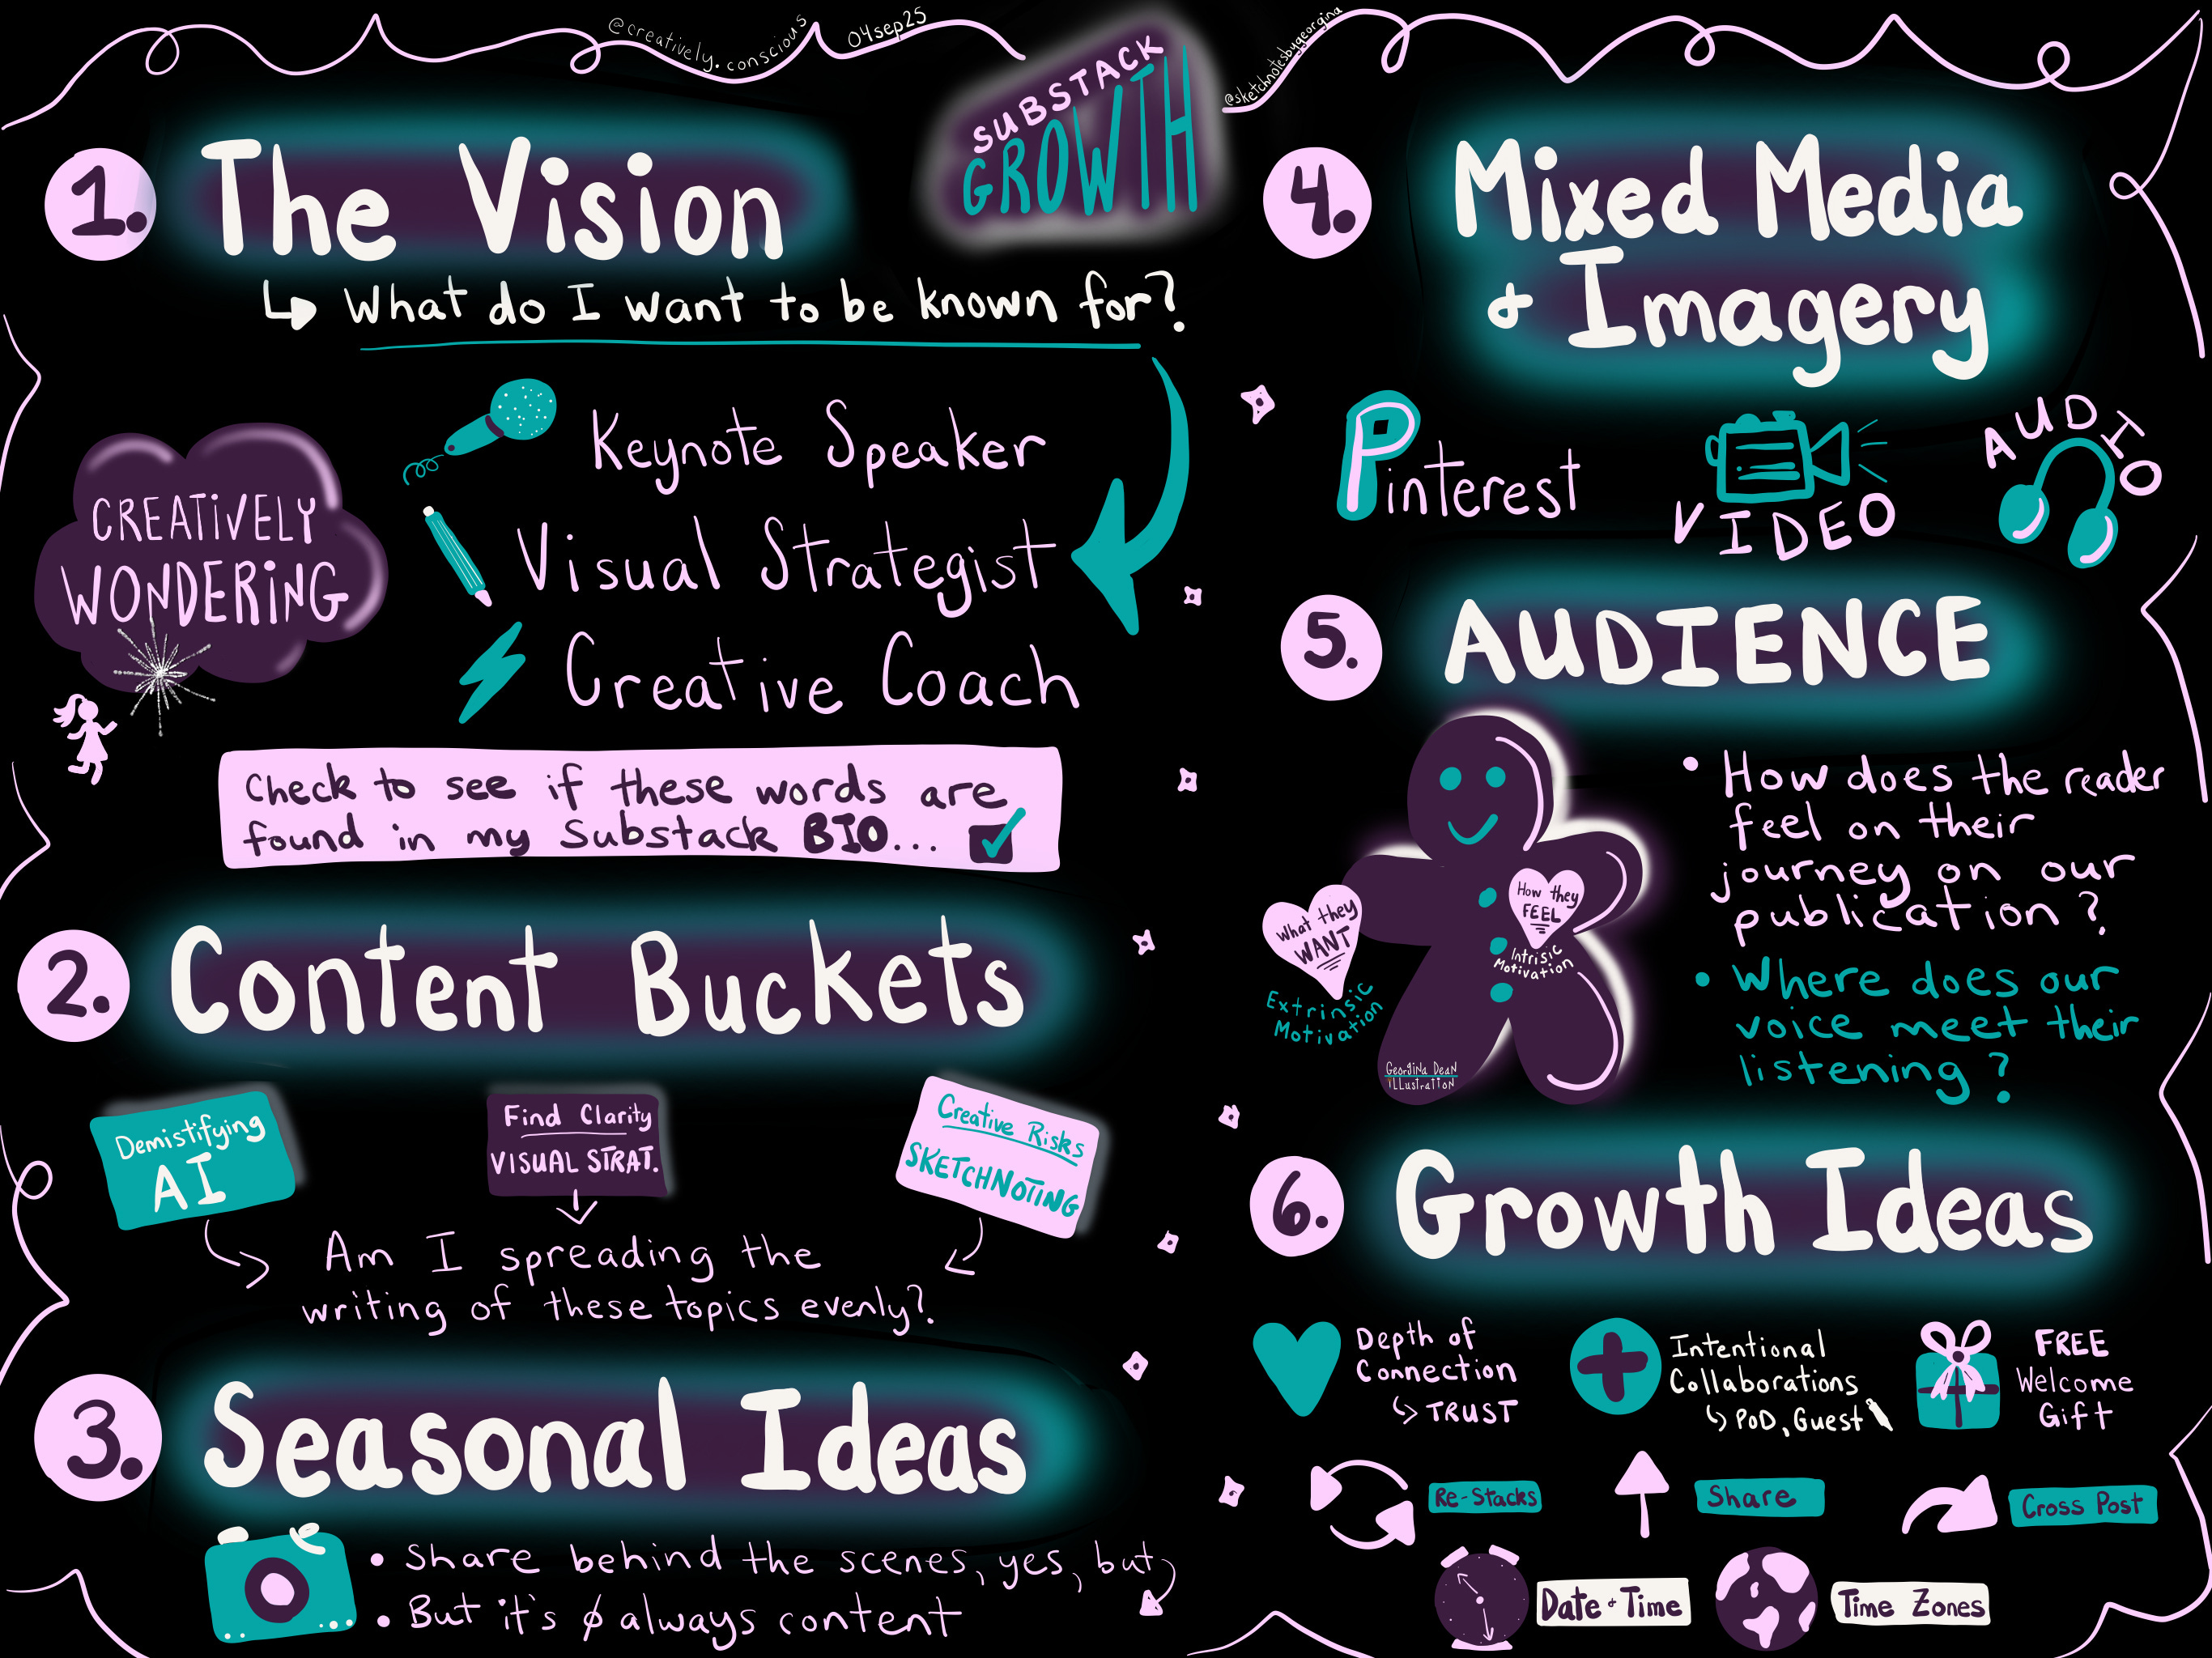 @creatively.conscious
04sep25
SUBSTACK
GROWTH
@sketchnotesbygeorgina
1. The Vision
What do I want to be known for?
CREATIVELY
WONDERING
Keynote Speaker
Visual Strategist
Creative Coach
Check to see if these words are
found in my Substack BIO...
2. Content Buckets
Demistifying
AI
Find Clarity
VISUAL STRAT.
Creative Risks
SKETCHNOTING
Am I spreading the
writing of these topics evenly?
3. Seasonal Ideas
• Share behind the scenes, yes, but
• But it's ø always content
4. Mixed Media
& Imagery
Pinterest
VIDEO
AUDIO
5. AUDIENCE
What they
WANT
Extrinsic
Motivation
How they
FEEL
Intrisic
Motivation
Georgina Dean
Illustration
• How does the reader
feel on their
journey on our
publication?
• Where does our
voice meet their
listening?
6. Growth Ideas
Depth of
Connection
↳ TRUST
Intentional
Collaborations
↳ POD, Guest
FREE
Welcome
Gift
Re-Stacks
Share
Cross Post
Date & Time
Time Zones